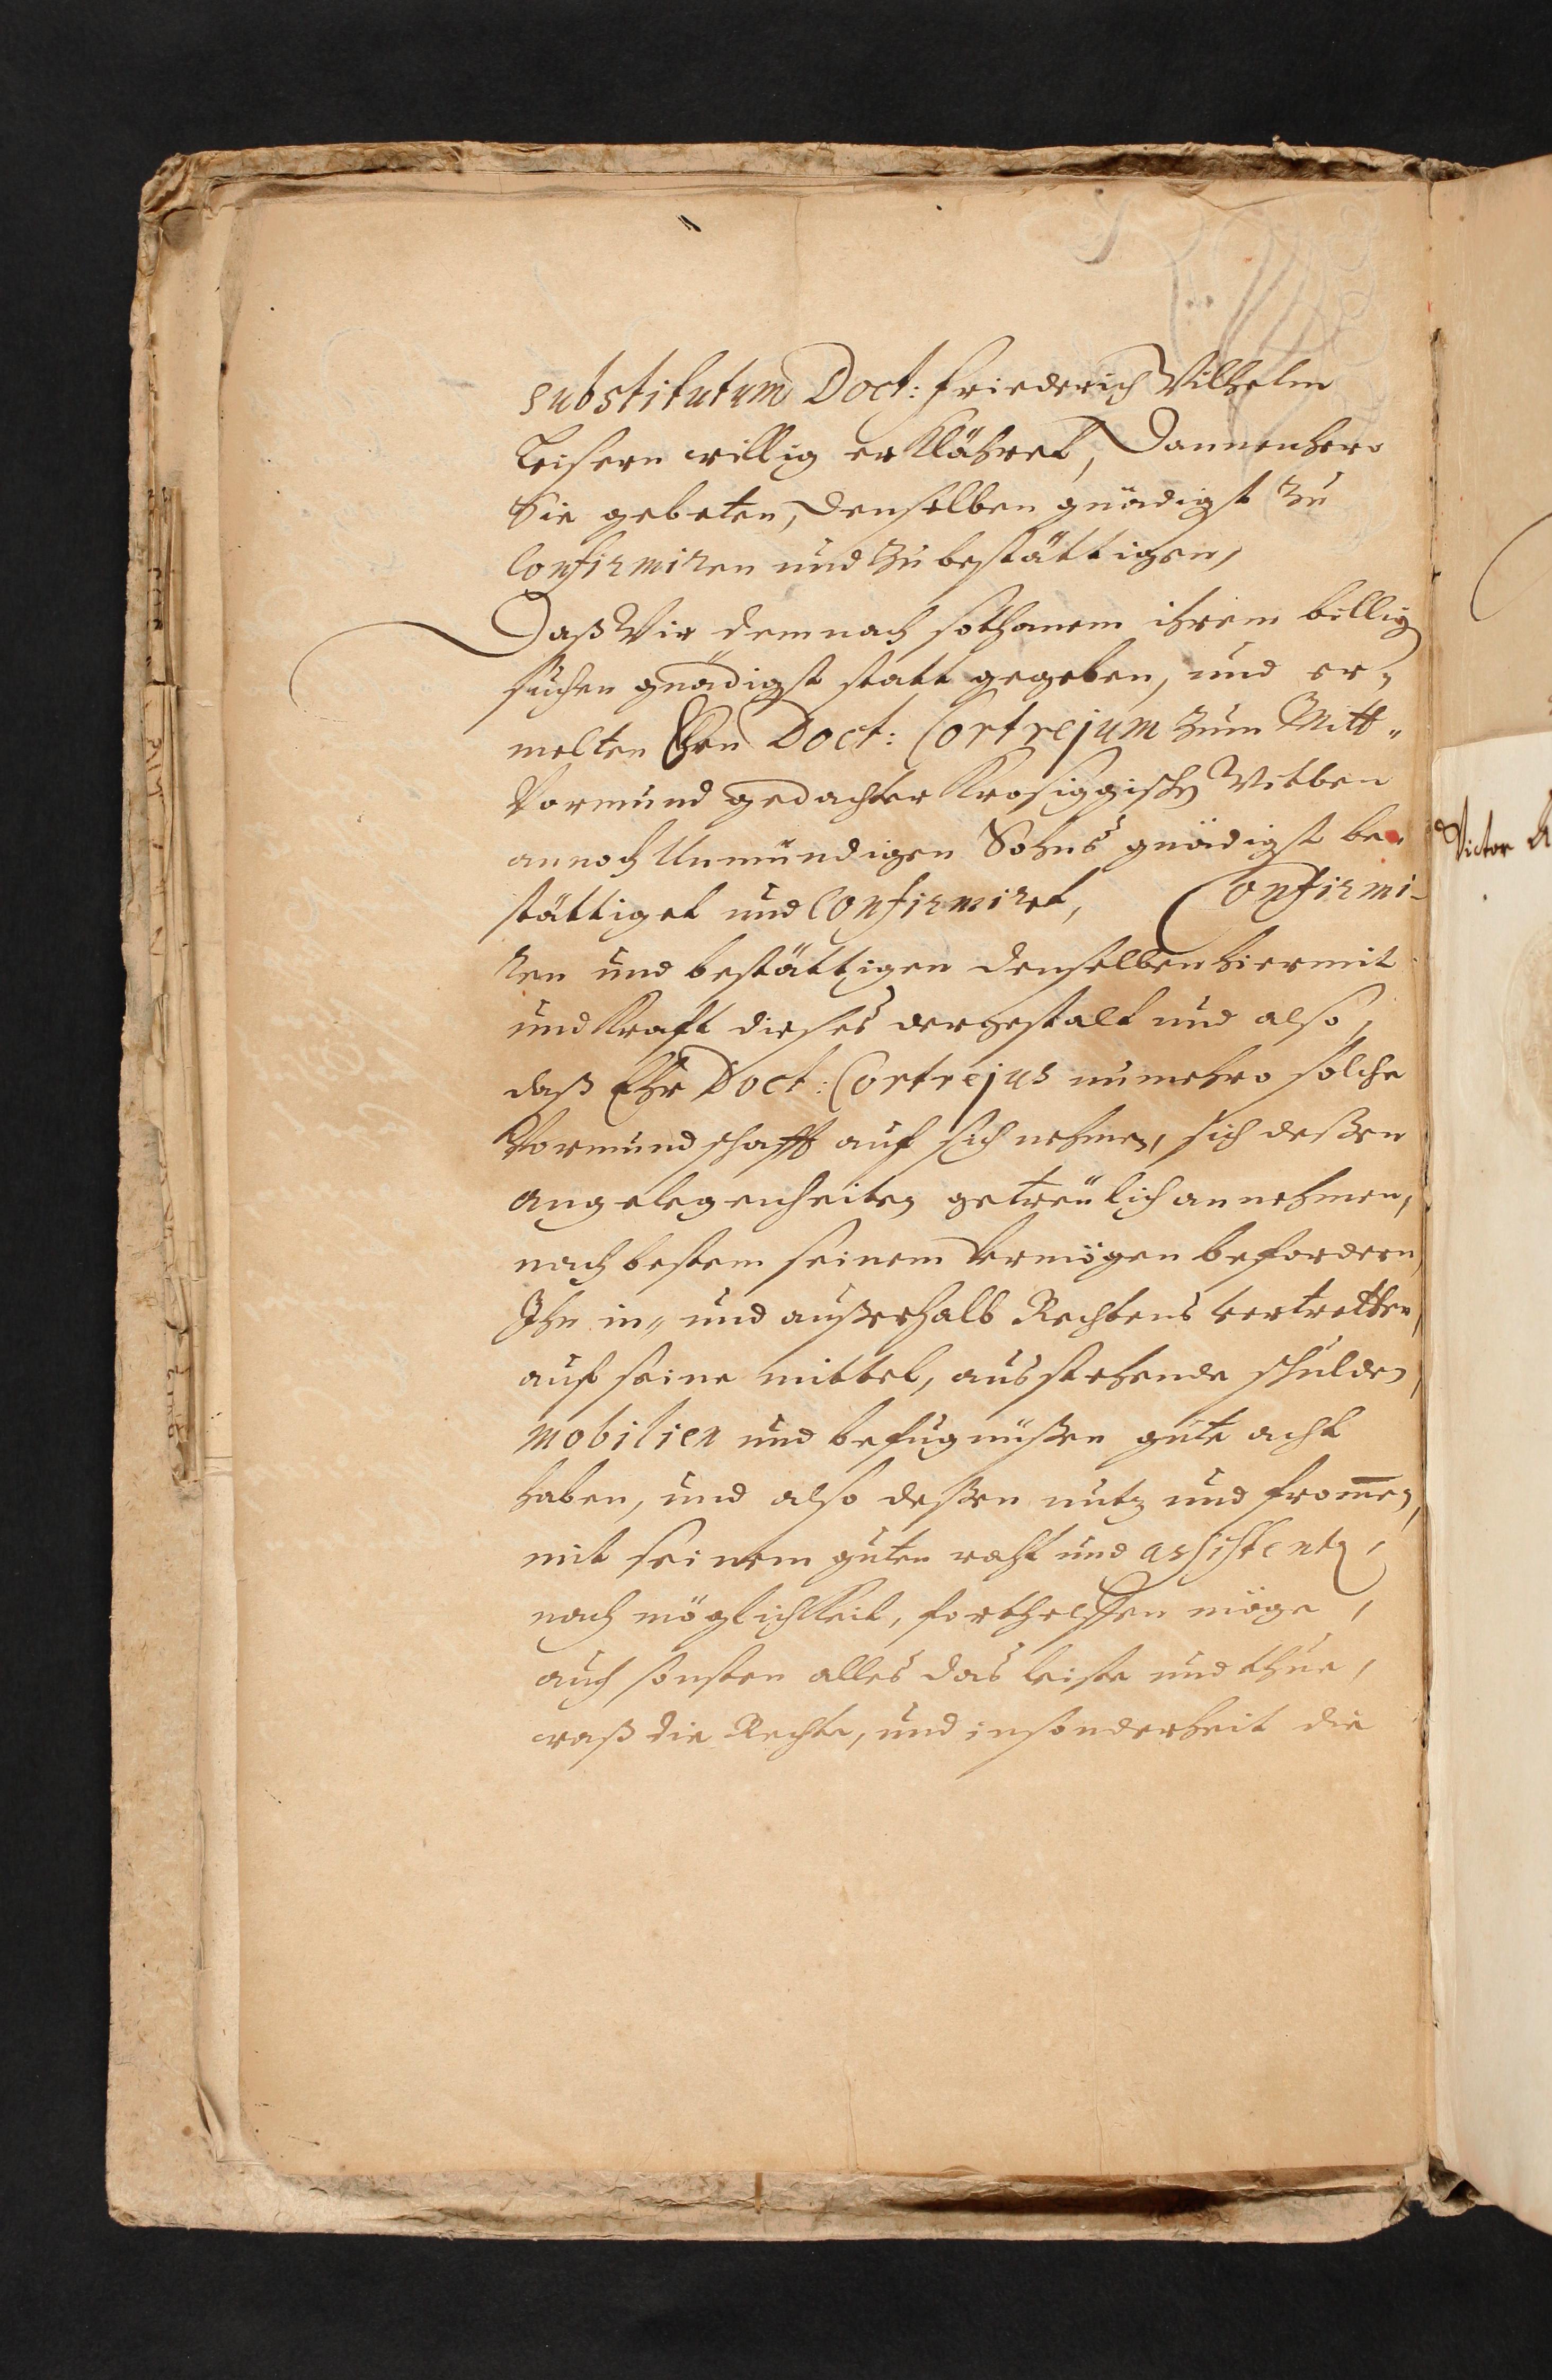 substitutum Doct: Friederich Wilhelm
Leisern willig erklähret, Dannenhero
Sie gebeten, denselben gnädigst zu
Confirmiren und zu bestättigen,
Daß Wir demnach sothanem ihrem billig
suchen gnädigst statt gegeben, und er„
melten Ehrn Doct: Cortrejum zum Mitt„
Vormund gedachter Krosiggischen Witben
annoch Unmündigen Sohns gnädigst be„
stättiget und Confirmiret, Confirmi-
ren und bestättigen denselben hiermit
und Krafft dieses dergestalt und also,
daß Ehr Doct: Cortrejus nunmehro solche
Vormundschafft auf sich nehmen, sich deßen
angelegenheiten getreülich annehmen,
nach bestem seinem Vermögen befordern,
Ihn in„ und außerhalb Rechtens vertretten,
auf seine mittel, ausstehende schulden,
mobilien und befugnüßen gute acht
haben, und also deßen nutz und frommen,
mit seinem guten raht und assistentz,
nach mögligkeit, forthelffen möge,
auch sonsten alles das leiste und thue,
waß die Rechte, und insonderheit die
Victor